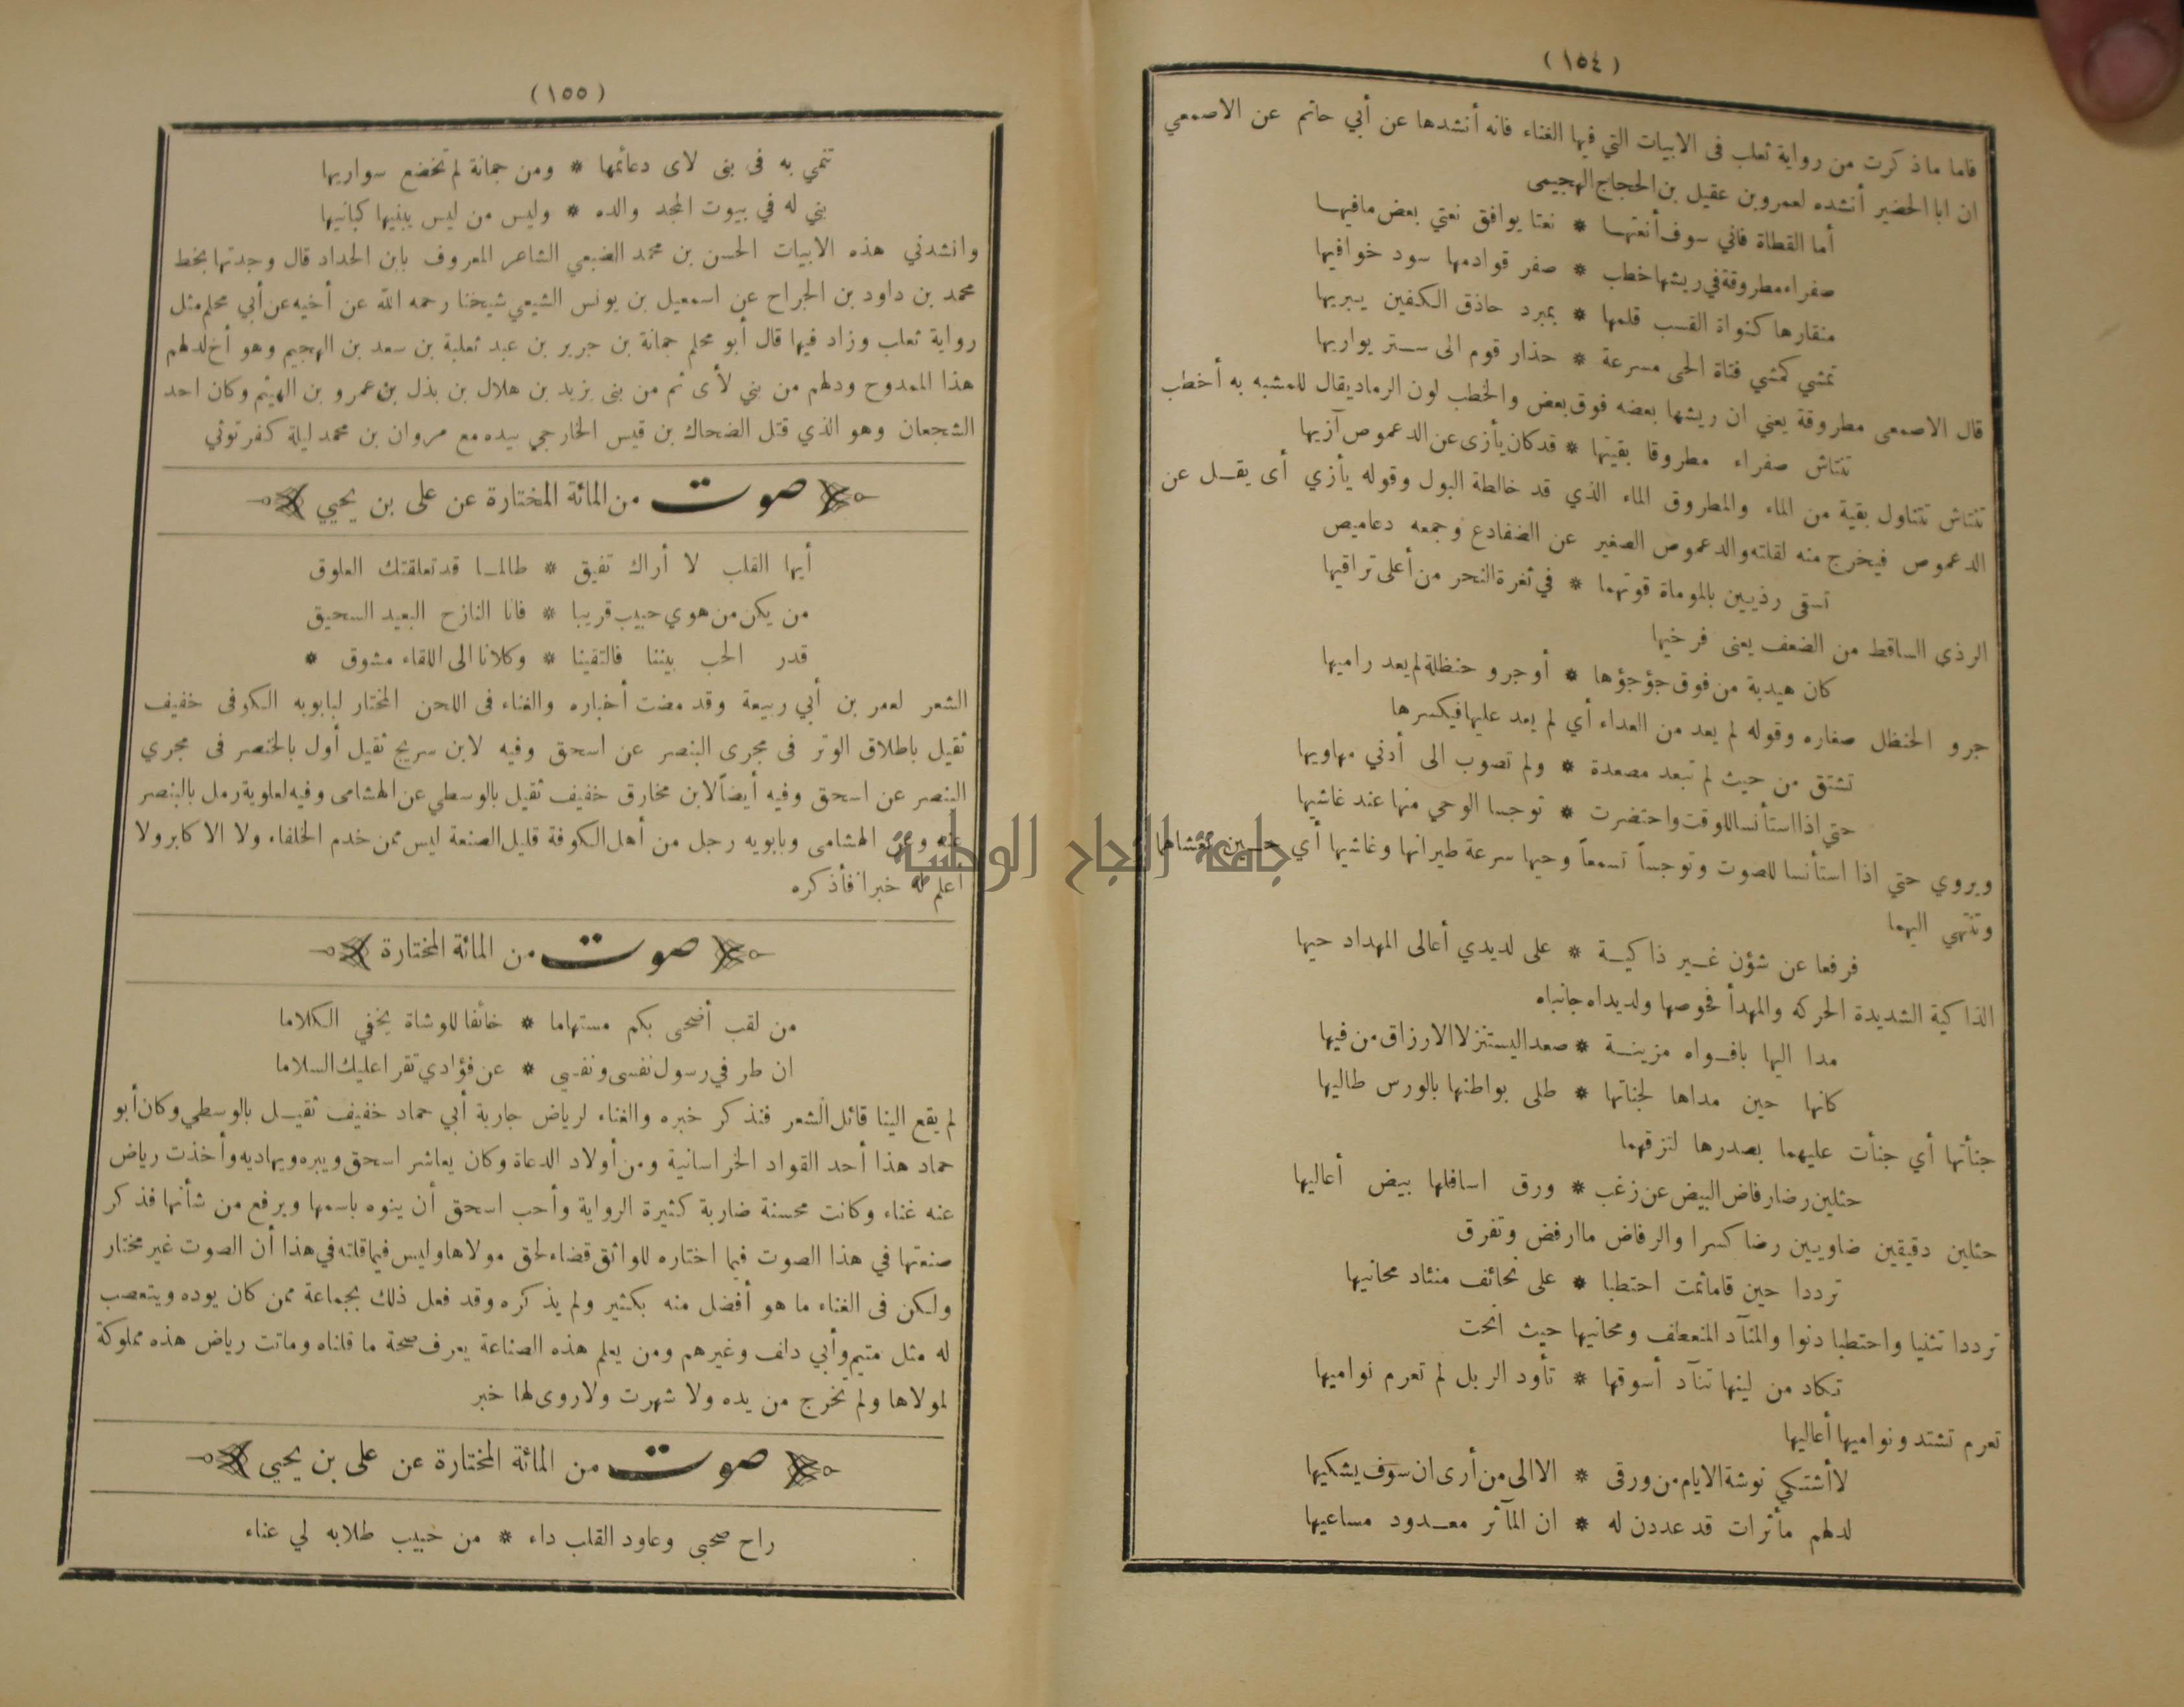 (١٥٤)
فاما ماذكرت من رواية ثعلب فى الابيات التي فيها الغناء فانه أنشدها عن أبي حاتم عن الاصمعي
ان ابا الحضير أنشده لعمرو بن عقيل بن الحجاج الهجيمى
أما القطاة فاني سوف أنعتهـا * نعتا يوافق نعتي بعض مافيهـا
صفراء مطروقة في ريشها خطب * صفر قوادمها سود خوافيها
منقارها كنواة القسب قلمها * بمبرد حاذق الكفين يبريها
تمشي كمشي فتاة الحى مسرعة * حذار قوم الى ستر يواريها
قال الاصمعى مطروقة يعني ان ريشها بعضه فوق بعض والخطب لون الرماد يقال للمشبه به أخطب
تنتاش صفراء مطروقا بقيتها * قد كان يأزى عن الدعموص آزيها
تنتاش تتناول بقية من الماء والمطروق الماء الذي قد خالطة البول وقوله يأزي أى يقـل عن
الدعموص فيخرج منه لقلته والدعموص الصغير عن الضفادع وجمعه دعاميص
تسقى رذيين بالموماة قوتهما * في ثغرة النحر من أعلى تراقيها
الرذي الساقط من الضعف يعنى فرخيها
كان هيدبة من فوق جؤجؤها * أو جرو حنظلة لم يعد راميها
جرو الحنظل صغاره وقوله لم يعد من العداء أي لم يعد عليها فيكسرها
تشتق من حيث لم تبعد مصعدة * ولم تصوب الى أدني مهاويها
حتي اذا استأنسا للوقت واحتضرت * توجسا الوحي منها عند غاشيها
ويروي حتي اذا استأنسا للصوت وتوجساً تسمعاً وحيها سرعة طيرانها وغاشيها أي حـين تغشاهما
وتنتهي اليهما
فرفعا عن شؤن غـير ذاكيـة * على لديدي أعالى المهداد حيها
الذاكية الشديدة الحركه والمهدأ فحوصها ولديداه جانباه
مدا اليها بافـواه مزينـة * صعدا ليستنزلا الارزاق من فيها
كانها حين مداها لجناتها * طلى بواطنها بالورس طاليها
جنأتها أي جنأت عليهما بصدرها لتزقهما
حثلين رضا رفاض البيض عن زغب * ورق اسافلها بيض أعاليها
حثلين دقيقين ضاويين رضا كسرا والرفاض ما ارفض وتفرق
ترددا حين قاما ثمت احتطبا * على نحائف منئاد محانيها
ترددا تثنيا واحتطبا دنوا والمنآد المنعطف ومحانيها حيث انحت
تكاد من لينها تنآد أسوقها * تأود الربل لم تعرم نواميها
تعرم تشتد ونواميها أعاليها
لا أشتكي نوشة الايام من ورقى * الا الى من أرى ان سوف يشكيها
لدلهم مأثرات قد عددن له * ان المآثر معـدود مساعيها
(١٥٥)
تنمي به فى بنى لاى دعائمها * ومن جمانة لم تخضع سواريها
بني له في بيوت المجد والده * وليس من ليس يبنيها كبانيها
وانشدني هذه الابيات الحسن بن محمد الضبعي الشاعر المعروف بابن الحداد قال وجدتها بخط
محمد بن داود بن الجراح عن اسمعيل بن يونس الشيعي شيخنا رحمه الله عن أخيه عن أبي محلم مثل
رواية ثعلب وزاد فيها قال أبو محلم جمانة بن جرير بن عبد ثعلبة بن سعد بن الهجيم وهو أخ لدلهم
هذا الممدوح ودلهم من بني لأى ثم من بنى يزيد بن هلال بن بذل بن عمرو بن الهيثم وكان احد
الشجعان وهو الذي قتل الضحاك بن قيس الخارجي بيده مع مروان بن محمد ليلة كفرتوثي
صوت من المائة المختارة عن على بن يحيي
أيها القلب لا أراك تفيق * طالمـا قد تعلقتك العلوق
من يكن من هوي حبيب قريبا * فانا النازح البعيد السحيق
قدر الحب بيننا فالتقينا * وكلانا الى اللقاء مشوق *
الشعر لعمر بن أبي ربيعة وقد مضت أخباره والغناء فى اللحن المختار لبابويه الكوفى خفيف
ثقيل باطلاق الوتر فى مجرى البنصر عن اسحق وفيه لابن سريج ثقيل أول بالخنصر فى مجري
البنصر عن اسحق وفيه أيضاً لابن مخارق خفيف ثقيل بالوسطي عن الهشامى وفيه لعلوية رمل بالبنصر
عنه وعن الهشامى وبابويه رجل من أهل الكوفة قليل الصنعة ليس ممن خدم الخلفاء ولا الاكابر ولا
أعلم له خبرا فأذكره
صوت من المائة المختارة
من لقب أضحى بكم مستهاما * خائفا للوشاة يخفي الكلاما
ان طرفي رسول نفسى ونفسي * عن فؤادي تقرا عليك السلاما
لم يقع الينا قائل الشعر فنذكر خبره والغناء لرياض جارية أبي حماد خفيف ثقيـل بالوسطي وكان أبو
حماد هذا أحد القواد الخراسانية ومن أولاد الدعاة وكان يعاشر اسحق ويبره ويهاديه وأخذت رياض
عنه غناء وكانت محسنة ضاربة كثيرة الرواية وأحب اسحق أن ينوه باسمها ويرفع من شأنها فذكر
صنعتها في هذا الصوت فيما اختاره للواثق قضاء لحق مولاها وليس فيما قلته في هذا أن الصوت غير مختار
ولكن فى الغناء ما هو أفضل منه بكثير ولم يذكره وقد فعل ذلك بجماعة ممن كان يوده ويتعصب
له مثل متيم وأبي دلف وغيرهم ومن يعلم هذه الصناعة يعرف صحة ما قلناه وماتت رياض هذه مملوكة
لمولاها ولم تخرج من يده ولا شهرت ولا روى لها خبر
صوت من المائة المختارة عن على بن يحيي
راح صحبى وعاود القلب داء * من حبيب طلابه لي عناء
جامعة النجاح الوطنية